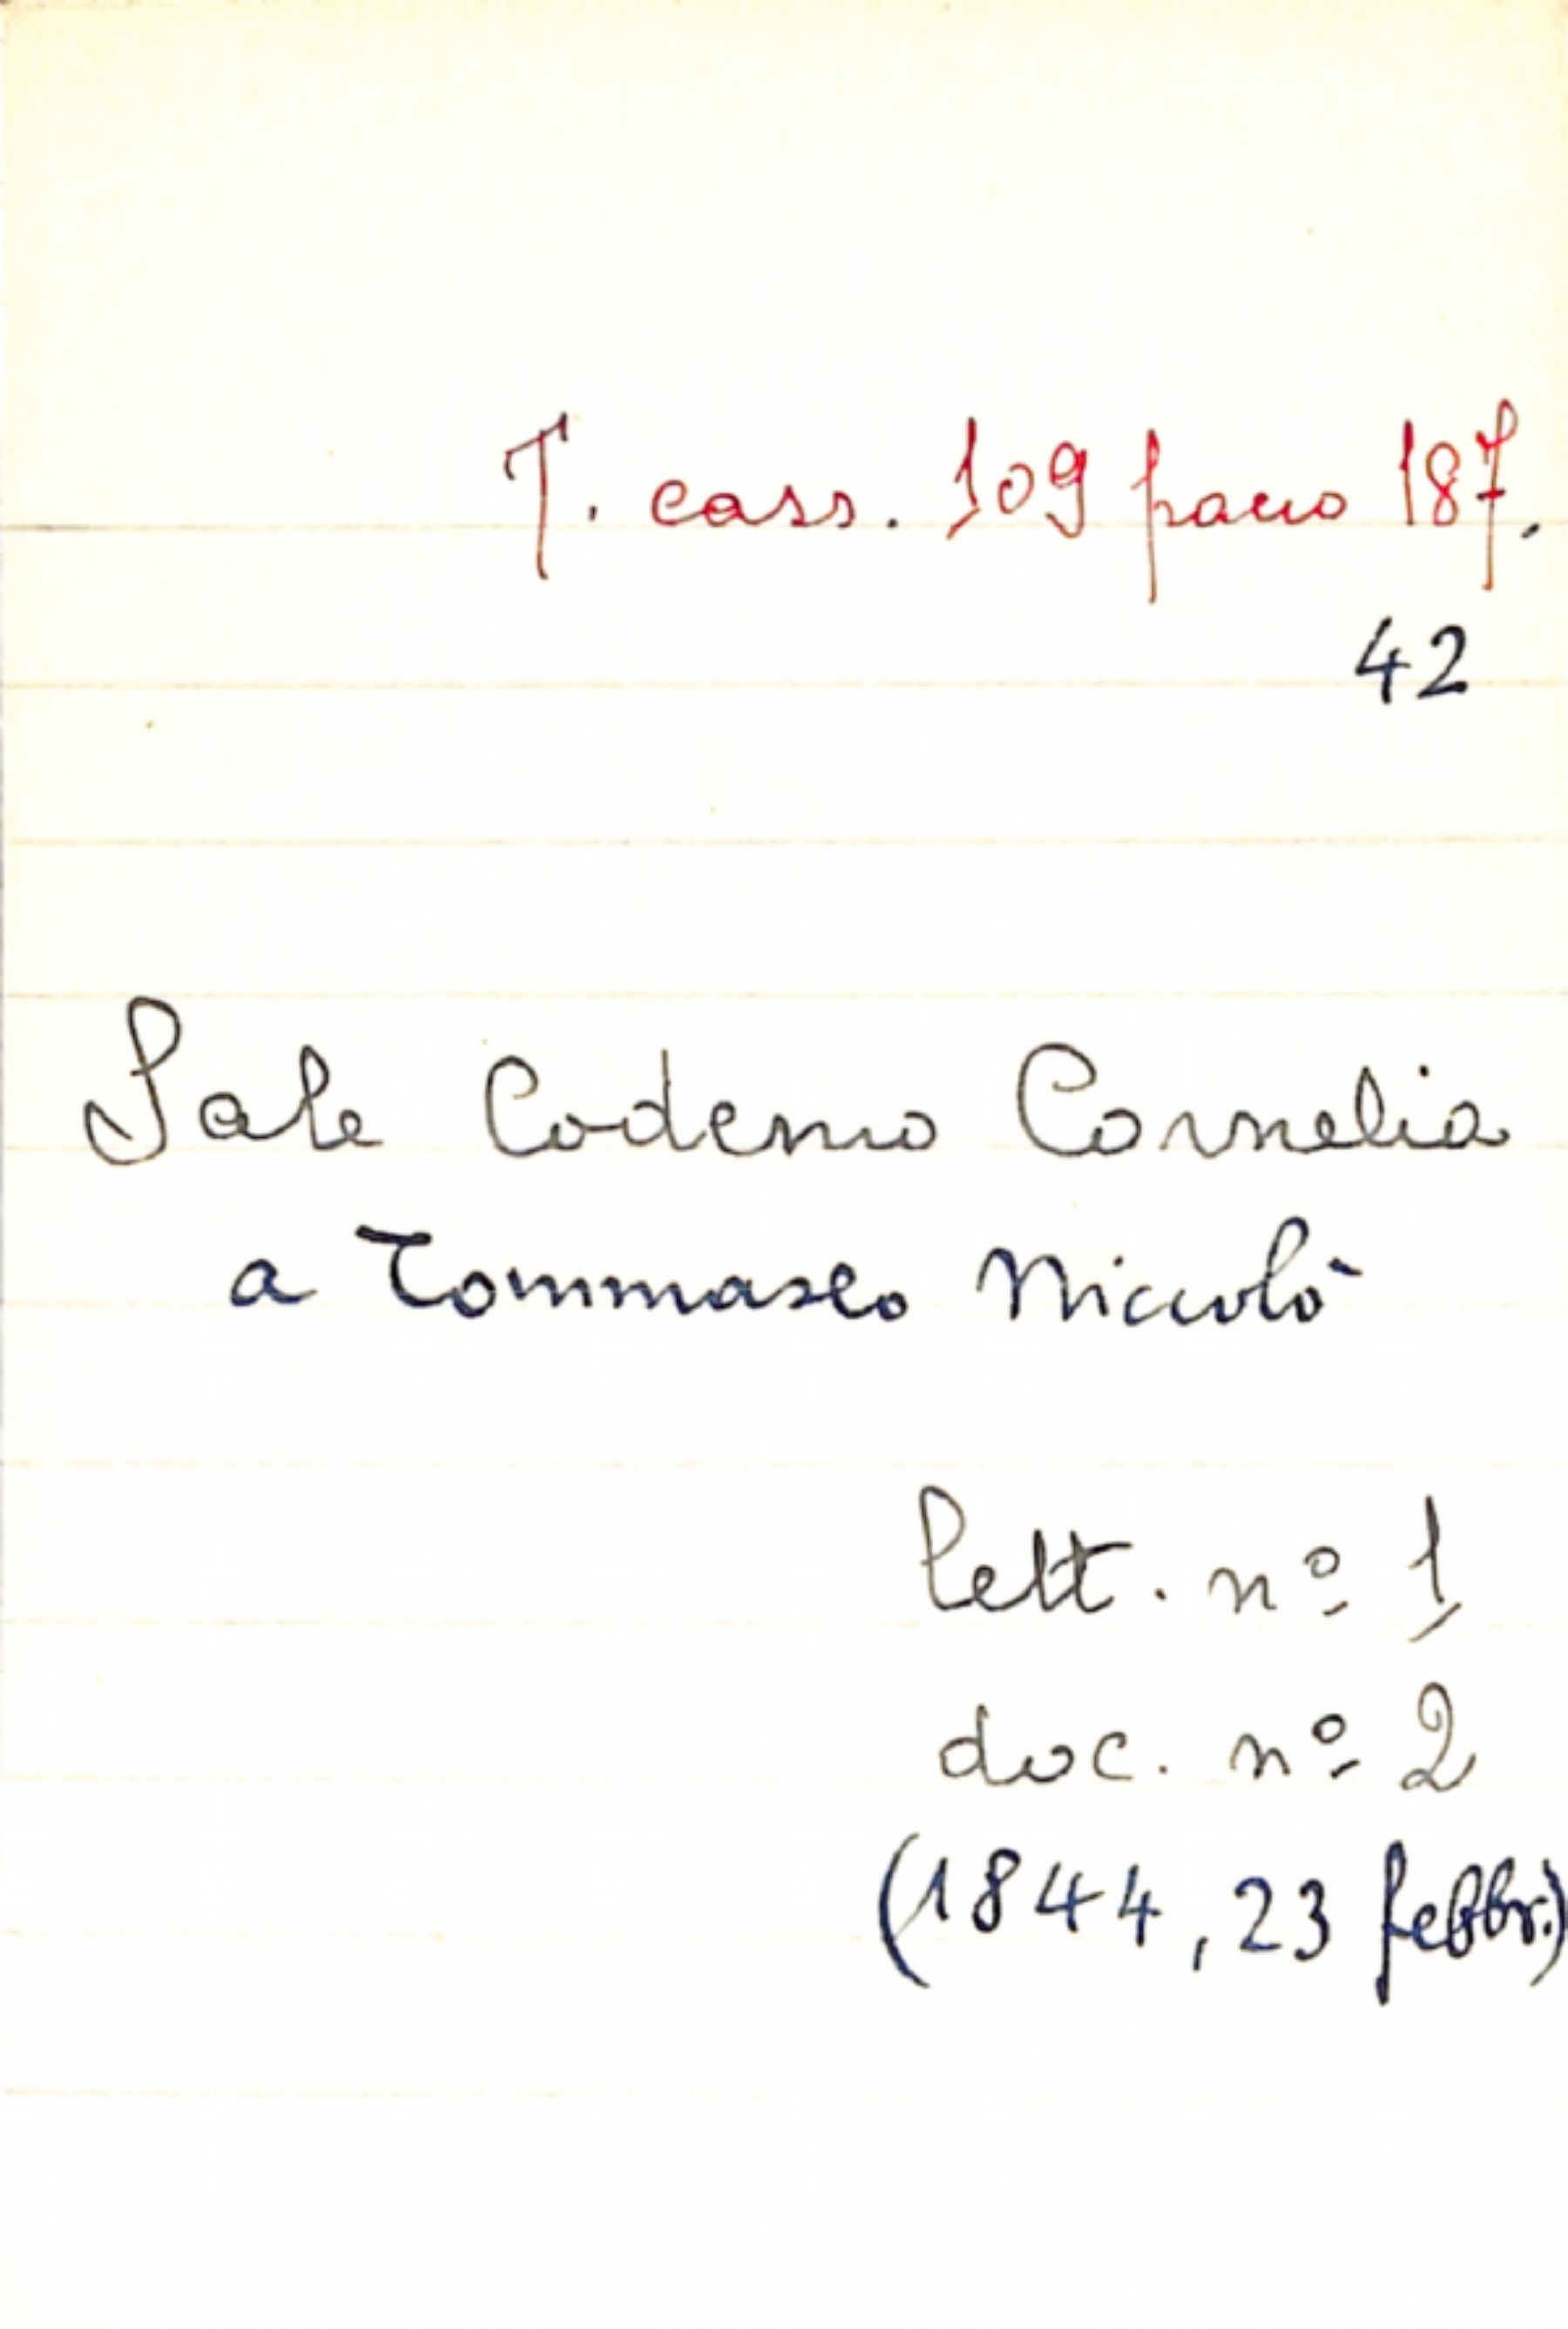 T. cass. 109 pacco 187.
42
Sale Codemo Cornelia
a Tommaseo Niccolò
lett. nº 1
doc. nº 2
(1844, 23 febbr.)